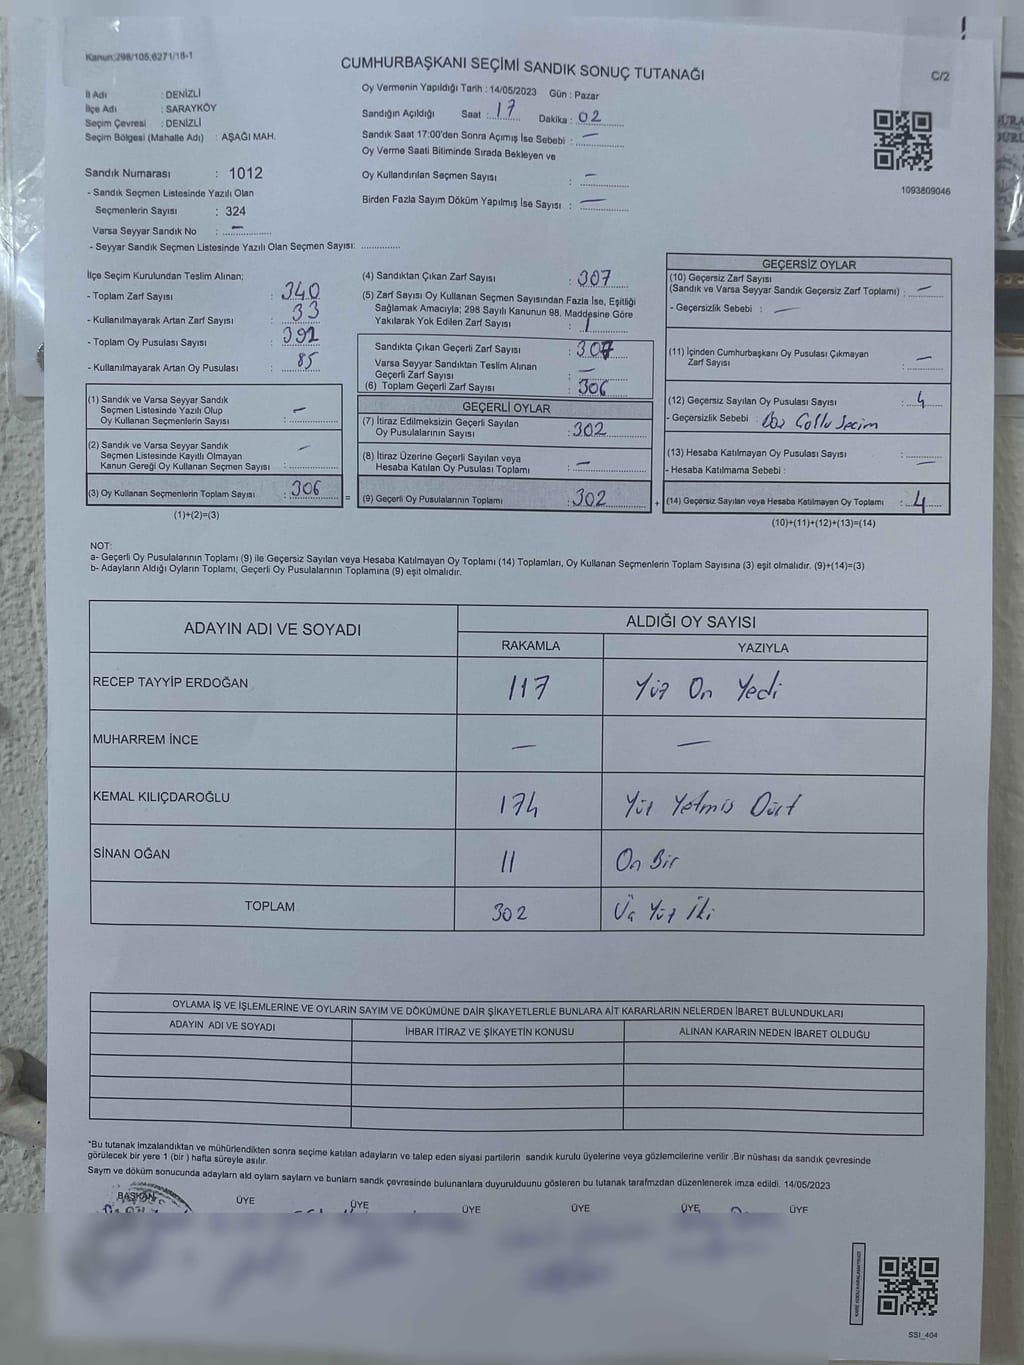 Kanun:298/105;6271/18-1
CUMHURBAŞKANI SEÇİMİ SANDIK SONUÇ TUTANAĞI
C/2
İl Adı : DENİZLİ
İlçe Adı : SARAYKÖY
Seçim Çevresi : DENİZLİ
Seçim Bölgesi (Mahalle Adı) : AŞAĞI MAH.
Oy Vermenin Yapıldığı Tarih : 14/05/2023 Gün : Pazar
Sandığın Açıldığı Saat : 17 Dakika : 02
Sandık Saat 17:00'den Sonra Açımış İse Sebebi : —
Oy Verme Saati Bitiminde Sırada Bekleyen ve
Oy Kullandırılan Seçmen Sayısı : —
Birden Fazla Sayım Döküm Yapılmış İse Sayısı : —
1093809046
Sandık Numarası : 1012
- Sandık Seçmen Listesinde Yazılı Olan
Seçmenlerin Sayısı : 324
Varsa Seyyar Sandık No : —
- Seyyar Sandık Seçmen Listesinde Yazılı Olan Seçmen Sayısı: ............
İlçe Seçim Kurulundan Teslim Alınan;
- Toplam Zarf Sayısı : 340
- Kullanılmayarak Artan Zarf Sayısı : 33
- Toplam Oy Pusulası Sayısı : 392
- Kullanılmayarak Artan Oy Pusulası : 85
(1) Sandık ve Varsa Seyyar Sandık
Seçmen Listesinde Yazılı Olup
Oy Kullanan Seçmenlerin Sayısı : —
(2) Sandık ve Varsa Seyyar Sandık
Seçmen Listesinde Kayıtlı Olmayan
Kanun Gereği Oy Kullanan Seçmen Sayısı : —
(3) Oy Kullanan Seçmenlerin Toplam Sayısı : 306
(1)+(2)=(3)
=
(4) Sandıktan Çıkan Zarf Sayısı : 307
(5) Zarf Sayısı Oy Kullanan Seçmen Sayısından Fazla İse, Eşitliği
Sağlamak Amacıyla; 298 Sayılı Kanunun 98. Maddesine Göre
Yakılarak Yok Edilen Zarf Sayısı : 1
Sandıkta Çıkan Geçerli Zarf Sayısı : 307
Varsa Seyyar Sandıktan Teslim Alınan
Geçerli Zarf Sayısı : —
(6) Toplam Geçerli Zarf Sayısı : 306
GEÇERLİ OYLAR
(7) İtiraz Edilmeksizin Geçerli Sayılan
Oy Pusulalarının Sayısı : 302
(8) İtiraz Üzerine Geçerli Sayılan veya
Hesaba Katılan Oy Pusulası Toplamı : —
(9) Geçerli Oy Pusulalarının Toplamı : 302
+
GEÇERSİZ OYLAR
(10) Geçersiz Zarf Sayısı
(Sandık ve Varsa Seyyar Sandık Geçersiz Zarf Toplamı) : —
- Geçersizlik Sebebi : —
(11) İçinden Cumhurbaşkanı Oy Pusulası Çıkmayan
Zarf Sayısı : —
(12) Geçersiz Sayılan Oy Pusulası Sayısı : 4
- Geçersizlik Sebebi :
(13) Hesaba Katılmayan Oy Pusulası Sayısı : —
- Hesaba Katılmama Sebebi :
(14) Geçersiz Sayılan veya Hesaba Katılmayan Oy Toplamı : 4
(10)+(11)+(12)+(13)=(14)
NOT:
a- Geçerli Oy Pusulalarının Toplamı (9) ile Geçersiz Sayılan veya Hesaba Katılmayan Oy Toplamı (14) Toplamları, Oy Kullanan Seçmenlerin Toplam Sayısına (3) eşit olmalıdır. (9)+(14)=(3)
b- Adayların Aldığı Oyların Toplamı, Geçerli Oy Pusulalarının Toplamına (9) eşit olmalıdır.
ADAYIN ADI VE SOYADI ALDIĞI OY SAYISI
RAKAMLA YAZIYLA
RECEP TAYYİP ERDOĞAN 117 Yüz On Yedi
MUHARREM İNCE — —
KEMAL KILIÇDAROĞLU 174 Yüz Yetmiş Dört
SİNAN OĞAN 11 On Bir
TOPLAM 302 Üç Yüz İki
OYLAMA İŞ VE İŞLEMLERİNE VE OYLARIN SAYIM VE DÖKÜMÜNE DAİR ŞİKAYETLERLE BUNLARA AİT KARARLARIN NELERDEN İBARET BULUNDUKLARI
ADAYIN ADI VE SOYADI İHBAR İTİRAZ VE ŞİKAYETİN KONUSU ALINAN KARARIN NEDEN İBARET OLDUĞU
*Bu tutanak imzalandıktan ve mühürlendikten sonra seçime katılan adayların ve talep eden siyasi partilerin sandık kurulu üyelerine veya gözlemcilerine verilir .Bir nüshası da sandık çevresinde
görülecek bir yere 1 (bir ) hafta süreyle asılır.
Sayım ve döküm sonucunda adayların ald oyların sayların ve bunların sandık çevresinde bulunanlara duyurulduunu gösteren bu tutanak tarafmzdan düzenlenerek imza edildi. 14/05/2023
BAŞKAN ÜYE ÜYE ÜYE ÜYE ÜYE ÜYE
SSI_404